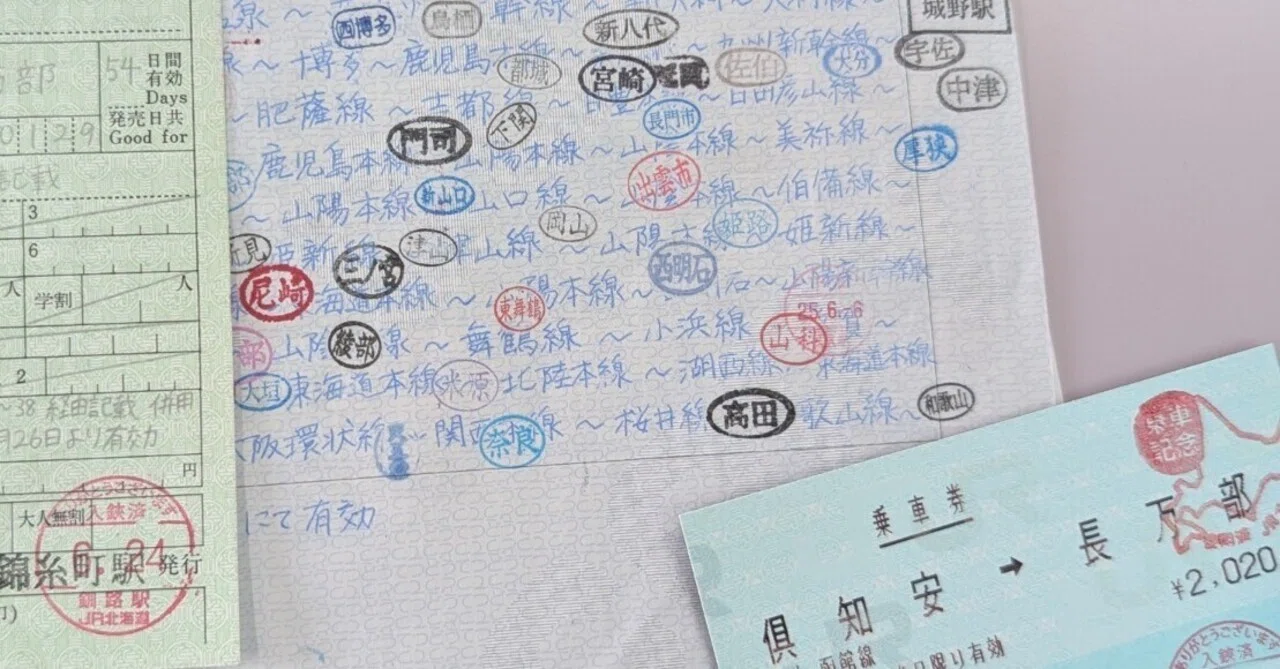 部
54
日間
有効
Days
発売日共
0 1 2 9
Good for
記載
3
6
人
学割
人
2
~38 経由記載 併用
月26日より有効
円
大人無割
ありがとうございます
入鋏済
6.24
錦糸町駅 発行
釧路駅
JR北海道
線 ~
西博多
鳥栖
幹線 ~
新八代
城野駅
~ 博多 ~ 鹿児島本線 ~
都城
宮崎
佐伯
九州新幹線 ~
大分
宇佐
中津
~ 肥薩線 ~ 吉都線 ~ 日豊本線 ~ 日田彦山線 ~
門司
下関
長門市
鹿児島本線 ~ 山陽本線 ~ 山陰本線 ~ 美祢線 ~
厚狭
~ 山陽本線
新山口
山口線 ~
出雲市
~ 伯備線 ~
新見
姫新線 ~
津山
津山線 ~
岡山
山陽本線
姫路
姫新線 ~
尼崎
三ノ宮
東海道本線 ~ 山陽本線 ~
西明石
25.6.-6
東舞鶴
山陰
綾部
線 ~ 舞鶴線 ~ 小浜線 ~
山科
大垣
東海道本線
米原
北陸本線 ~ 湖西線 ~ 東海道本線
大阪環状線 ~ 関西本線
奈良
~ 桜井線
高田
和歌山線 ~
和歌山
にて有効
乗車券
乗車
記念
倶知安 → 長万部
¥2,020
函館線
日限り有効
ありがとうございます
入鋏済